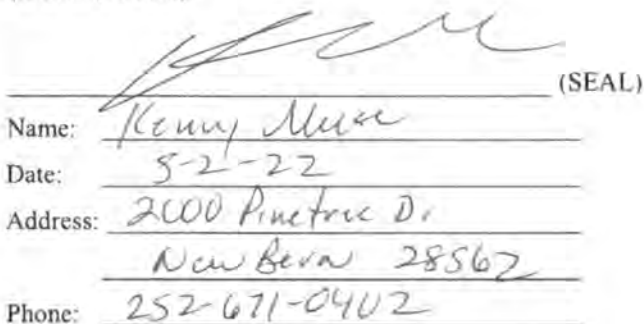 (SEAL)
Name: Kenny Muse
Date: 5-2-22
Address: 2000 Pinetree Dr
New Bern 28562
Phone: 252-671-0402